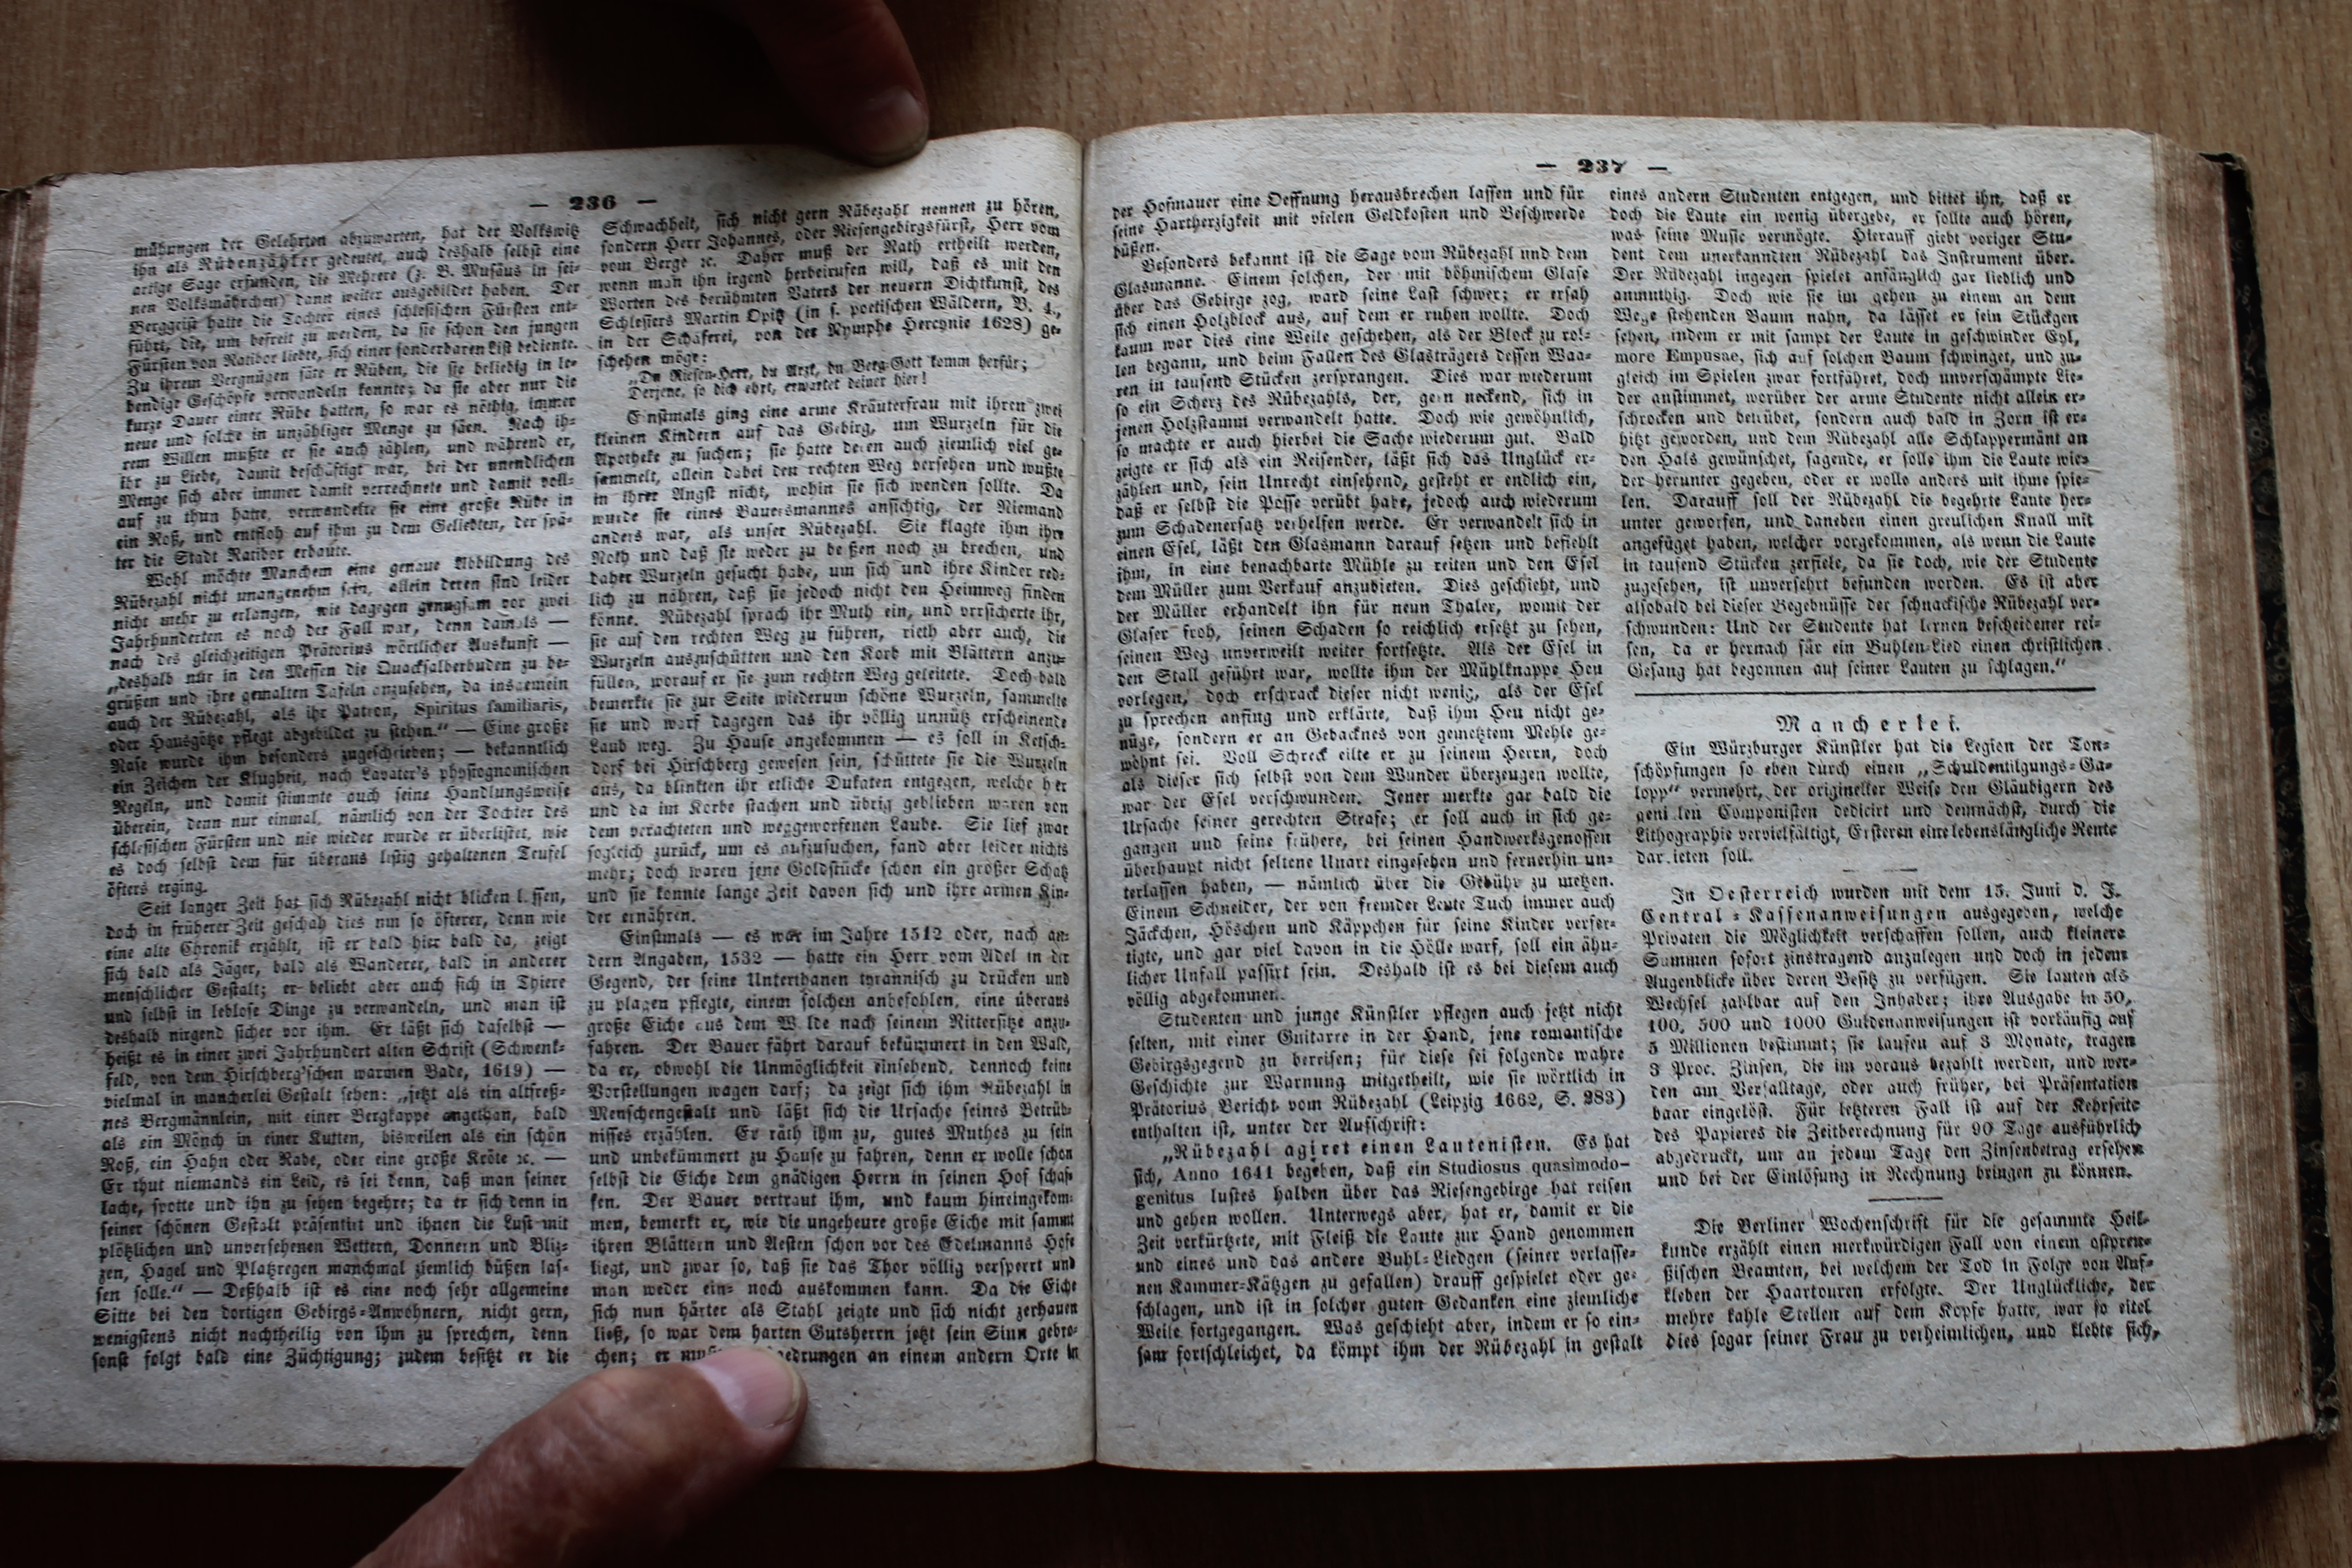 — 236 —
mühungen der Gelehrten abzuwarten, hat der Volkswitz
ihn als Rübenzähler gedeutet, auch deshalb selbst eine
artige Sage erfunden, die Mehrere (z. B. Musäus in sei-
nen Volksmährchen) dann weiter ausgebildet haben. Der
Berggeist hatte die Tochter eines schlesischen Fürsten ent-
führt, die, um befreit zu werden, da sie schon den jungen
Fürsten von Ratibor liebte, sich einer sonderbaren List bediente.
Zu ihrem Vergnügen säte er Rüben, die sie beliebig in le-
bendige Geschöpfe verwandeln konnte; da sie aber nur die
kurze Dauer einer Rübe hatten, so war es nöthig, immer
neue und solche in unzähliger Menge zu säen. Nach ih-
rem Willen mußte er sie auch zählen, und während er,
ihr zu Liebe, damit beschäftigt war, bei der unendlichen
Menge sich aber immer damit verrechnete und damit voll-
auf zu thun hatte, verwandelte sie eine große Rübe in
ein Roß, und entfloh auf ihm zu dem Geliebten, der spä-
ter die Stadt Ratibor erbaute.
Wohl möchte Manchem eine genaue Abbildung des
Rübezahl nicht unangenehm sein, allein deren sind leider
nicht mehr zu erlangen, wie dagegen genugsam vor zwei
Jahrhunderten es noch der Fall war, denn damals —
nach des gleichzeitigen Prätorius wörtlicher Auskunft —
„deshalb nur in den Messen die Quacksalberbuden zu be-
grüßen und ihre gemalten Tafeln anzusehen, da insgemein
auch der Rübezahl, als ihr Patron, Spiritus familiaris,
oder Hausgötze pflegt abgebildet zu stehen.“ — Eine große
Nase wurde ihm besonders zugeschrieben; — bekanntlich
ein Zeichen der Klugheit, nach Lavater's physiognomischen
Regeln, und damit stimmte auch seine Handlungsweise
überein, denn nur einmal, nämlich von der Tochter des
schlesischen Fürsten und nie wieder wurde er überlistet, wie
es doch selbst dem für überaus listig gehaltenen Teufel
öfters erging.
Seit langer Zeit hat sich Rübezahl nicht blicken lassen,
doch in früherer Zeit geschah dies um so öfterer, denn wie
eine alte Chronik erzählt, ist er bald hier bald da, zeigt
sich bald als Jäger, bald als Wanderer, bald in anderer
menschlicher Gestalt; er beliebt aber auch sich in Thiere
und selbst in leblose Dinge zu verwandeln, und man ist
deshalb nirgend sicher vor ihm. Er läßt sich daselbst —
heißt es in einer zwei Jahrhundert alten Schrift (Schwenk-
feld, von dem Hirschberg'schen warmen Bade, 1619) —
vielmal in mancherlei Gestalt sehen: „jetzt als ein altfreß-
nes Bergmännlein, mit einer Bergkappe angethan, bald
als ein Mönch in einer Kutten, bisweilen als ein schön
Roß, ein Hahn oder Rabe, oder eine große Kröte ꝛc. —
Er thut niemands ein Leid, es sei denn, daß man seiner
lache, spotte und ihn zu sehen begehre; da er sich denn in
seiner schönen Gestalt präsentirt und ihnen die Lust mit
plötzlichen und unversehenen Wettern, Donnern und Bliz-
zen, Hagel und Platzregen manchmal ziemlich büßen las-
sen solle.“ — Deßhalb ist es eine noch sehr allgemeine
Sitte bei den dortigen Gebirgs-Anwohnern, nicht gern,
wenigstens nicht nachtheilig von ihm zu sprechen, denn
sonst folgt bald eine Züchtigung; zudem besitzt er die
Schwachheit, sich nicht gern Rübezahl nennen zu hören,
sondern Herr Johannes, oder Riesengebirgsfürst, Herr vom
vom Berge ꝛc. Daher muß der Rath ertheilt werden,
wenn man ihn irgend herbeirufen will, daß es mit den
Worten des berühmten Vaters der neuern Dichtkunst, des
Schlesiers Martin Opitz (in s. poetischen Wäldern, B. 4.,
in der Schäferei, von der Nymphe Hercynie 1628) ge-
schehen möge:
„Du Riesen-Herr, du Arzt, du Berg-Gott komm herfür;
Derjene, so dich ehrt, erwartet deiner hier!
Einstmals ging eine arme Kräuterfrau mit ihren zwei
kleinen Kindern auf das Gebirg, um Wurzeln für die
Apotheke zu suchen; sie hatte deren auch ziemlich viel ge-
sammelt, allein dabei den rechten Weg versehen und wußte
in ihrer Angst nicht, wohin sie sich wenden sollte. Da
wurde sie eines Bauersmannes ansichtig, der Niemand
anders war, als unser Rübezahl. Sie klagte ihm ihre
Noth und daß sie weder zu beißen noch zu brechen, und
daher Wurzeln gesucht habe, um sich und ihre Kinder red-
lich zu nähren, daß sie jedoch nicht den Heimweg finden
könne. Rübezahl sprach ihr Muth ein, und versicherte ihr,
sie auf den rechten Weg zu führen, rieth aber auch, die
Wurzeln auszuschütten und den Korb mit Blättern anzu-
füllen, worauf er sie zum rechten Weg geleitete. Doch bald
bemerkte sie zur Seite wiederum schöne Wurzeln, sammelte
sie und warf dagegen das ihr völlig unnütz erscheinende
Laub weg. Zu Hause angekommen — es soll in Ketsch-
dorf bei Hirschberg gewesen sein, schüttete sie die Wurzeln
aus, da blinkten ihr etliche Dukaten entgegen, welche her
und da im Korbe stachen und übrig geblieben waren von
dem verachteten und weggeworfenen Laube. Sie lief zwar
sogleich zurück, um es aufzusuchen, fand aber leider nichts
mehr; doch waren jene Goldstücke schon ein großer Schatz
und sie konnte lange Zeit davon sich und ihre armen Kin-
der ernähren.
Einstmals — es war im Jahre 1512 oder, nach an-
dern Angaben, 1532 — hatte ein Herr vom Adel in der
Gegend, der seine Unterthanen tyrannisch zu drücken und
zu plagen pflegte, einem solchen anbefohlen, eine überaus
große Eiche aus dem Walde nach seinem Rittersitze anzu-
fahren. Der Bauer fährt darauf bekümmert in den Wald,
da er, obwohl die Unmöglichkeit einsehend, dennoch keine
Vorstellungen wagen darf; da zeigt sich ihm Rübezahl in
Menschengestalt und läßt sich die Ursache seines Betrüb-
nisses erzählen. Er räth ihm zu, gutes Muthes zu sein
und unbekümmert zu Hause zu fahren, denn er wolle schon
selbst die Eiche dem gnädigen Herrn in seinen Hof schaf-
fen. Der Bauer vertraut ihm, und kaum hineingekom-
men, bemerkt er, wie die ungeheure große Eiche mit sammt
ihren Blättern und Aesten schon vor des Edelmanns Hofe
liegt, und zwar so, daß sie das Thor völlig versperrt und
man weder ein- noch auskommen kann. Da die Eiche
sich nun härter als Stahl zeigte und sich nicht zerhauen
ließ, so war dem harten Gutsherrn jetzt sein Sinn gebro-
chen; er edrungen an einem andern Orte in
— 237 —
der Hofmauer eine Oeffnung herausbrechen lassen und für
seine Hartherzigkeit mit vielen Geldkosten und Beschwerde
büßen.
Besonders bekannt ist die Sage vom Rübezahl und dem
Glasmanne. Einem solchen, der mit böhmischem Glase
über das Gebirge zog, ward seine Last schwer; er ersah
sich einen Holzblock aus, auf dem er ruhen wollte. Doch
kaum war dies eine Weile geschehen, als der Block zu rol-
len begann, und beim Fallen des Glasträgers dessen Waa-
ren in tausend Stücken zersprangen. Dies war wiederum
so ein Scherz des Rübezahls, der, gern neckend, sich in
jenen Holzstamm verwandelt hatte. Doch wie gewöhnlich,
so machte er auch hierbei die Sache wiederum gut. Bald
zeigte er sich als ein Reisender, läßt sich das Unglück er-
zählen und, sein Unrecht einsehend, gesteht er endlich ein,
daß er selbst die Posse verübt habe, jedoch auch wiederum
zum Schadenersatz verhelfen werde. Er verwandelt sich in
einen Esel, läßt den Glasmann darauf setzen und befiehlt
ihm, in eine benachbarte Mühle zu reiten und den Esel
dem Müller zum Verkauf anzubieten. Dies geschieht, und
der Müller erhandelt ihn für neun Thaler, womit der
Glaser froh, seinen Schaden so reichlich ersetzt zu sehen,
seinen Weg unverweilt weiter fortsetzte. Als der Esel in
den Stall geführt war, wollte ihm der Mühlknappe Heu
vorlegen, doch erschrack dieser nicht wenig, als der Esel
zu sprechen anfing und erklärte, daß ihm Heu nicht ge-
nüge, sondern er an Gebacknes von gemetztem Mehle ge-
wöhnt sei. Voll Schreck eilte er zu seinem Herrn, doch
als dieser sich selbst von dem Wunder überzeugen wollte,
war der Esel verschwunden. Jener merkte gar bald die
Ursache seiner gerechten Strafe; er soll auch in sich ge-
gangen und seine frühere, bei seinen Handwerksgenossen
überhaupt nicht seltene Unart eingesehen und fernerhin un-
terlassen haben, — nämlich über die Gebühr zu metzen.
Einem Schneider, der von fremder Leute Tuch immer auch
Jäckchen, Höschen und Käppchen für seine Kinder verfer-
tigte, und gar viel davon in die Hölle warf, soll ein ähn-
licher Unfall passirt sein. Deshalb ist es bei diesem auch
völlig abgekommen.
Studenten und junge Künstler pflegen auch jetzt nicht
selten, mit einer Guitarre in der Hand, jene romantische
Gebirgsgegend zu bereisen; für diese sei folgende wahre
Geschichte zur Warnung mitgetheilt, wie sie wörtlich in
Prätorius Bericht vom Rübezahl (Leipzig 1662, S. 283)
enthalten ist, unter der Aufschrift:
„Rübezahl agiret einen Lautenisten. Es hat
sich, Anno 1641 begeben, daß ein Studiosus quasimodo-
genitus lustes halben über das Riesengebirge hat reisen
und gehen wollen. Unterwegs aber, hat er, damit er die
Zeit verkürtzete, mit Fleiß die Laute zur Hand genommen
und eines und das andere Buhl-Liedgen (seiner verlasse-
nen Kammer-Kätzgen zu gefallen) drauff gespielet oder ge-
schlagen, und ist in solcher guten Gedanken eine ziemliche
Weile fortgegangen. Was geschieht aber, indem er so ein-
sam fortschleichet, da kömpt ihm der Rübezahl in gestalt
eines andern Studenten entgegen, und bittet ihn, daß er
doch die Laute ein wenig übergebe, er sollte auch hören,
was seine Music vermögte. Hierauff giebt voriger Stu-
dent dem unerkannten Rübezahl das Instrument über.
Der Rübezahl ingegen spielet anfänglich gar lieblich und
anmuthig. Doch wie sie im gehen zu einem an dem
Wege stehenden Baum nahn, da lässet er sein Stückgen
sehen, indem er mit sampt der Laute in geschwinder Eyl,
more Empusae, sich auf solchen Baum schwinget, und zu-
gleich im Spielen zwar fortfähret, doch unverschämpte Lie-
der anstimmet, worüber der arme Studente nicht allein er-
schrocken und betrübet, sondern auch bald in Zorn ist er-
hitzt geworden, und dem Rübezahl alle Schlappermänt an
den Hals gewünschet, sagende, er solle ihm die Laute wie-
der herunter gegeben, oder er wolle anders mit ihme spie-
len. Darauff soll der Rübezahl die begehrte Laute her-
unter geworfen, und daneben einen greulichen Knall mit
angefüget haben, welcher vorgekommen, als wenn die Laute
in tausend Stücken zerfiele, da sie doch, wie der Studente
zugesehen, ist unversehrt befunden worden. Es ist aber
alsobald bei dieser Begebnüsse der schnackische Rübezahl ver-
schwunden: Und der Studente hat lernen bescheidener rei-
sen, da er hernach für ein Buhlen-Lied einen christlichen
Gesang hat begonnen auf seiner Lauten zu schlagen.“
Mancherlei.
Ein Würzburger Künstler hat die Legion der Ton-
schöpfungen so eben durch einen „Schuldentilgungs-Ga-
lopp“ vermehrt, der origineller Weise den Gläubigern des
genialen Componisten dedicirt und demnächst, durch die
Lithographie vervielfältigt, Ersteren eine lebenslängliche Rente
darbieten soll.
In Oesterreich wurden mit dem 15. Juni d. J.
Central-Kassenanweisungen ausgegeben, welche
Privaten die Möglichkeit verschaffen sollen, auch kleinere
Summen sofort zinstragend anzulegen und doch in jedem
Augenblicke über deren Besitz zu verfügen. Sie lauten als
Wechsel zahlbar auf den Inhaber; ihre Ausgabe in 50,
100, 500 und 1000 Guldenanweisungen ist vorläufig auf
5 Millionen bestimmt; sie laufen auf 3 Monate, tragen
3 Proc. Zinsen, die im voraus bezahlt werden, und wer-
den am Verfalltage, oder auch früher, bei Präsentation
baar eingelöst. Für letzteren Fall ist auf der Kehrseite
des Papieres die Zeitberechnung für 90 Tage ausführlich
abgedruckt, um an jedem Tage den Zinsenbetrag ersehen
und bei der Einlösung in Rechnung bringen zu können.
Die Berliner Wochenschrift für die gesammte Heil-
kunde erzählt einen merkwürdigen Fall von einem ostpreu-
ßischen Beamten, bei welchem der Tod in Folge von Auf-
kleben der Haartouren erfolgte. Der Unglückliche, der
mehre kahle Stellen auf dem Kopfe hatte, war so eitel
dies sogar seiner Frau zu verheimlichen, und klebte sich,